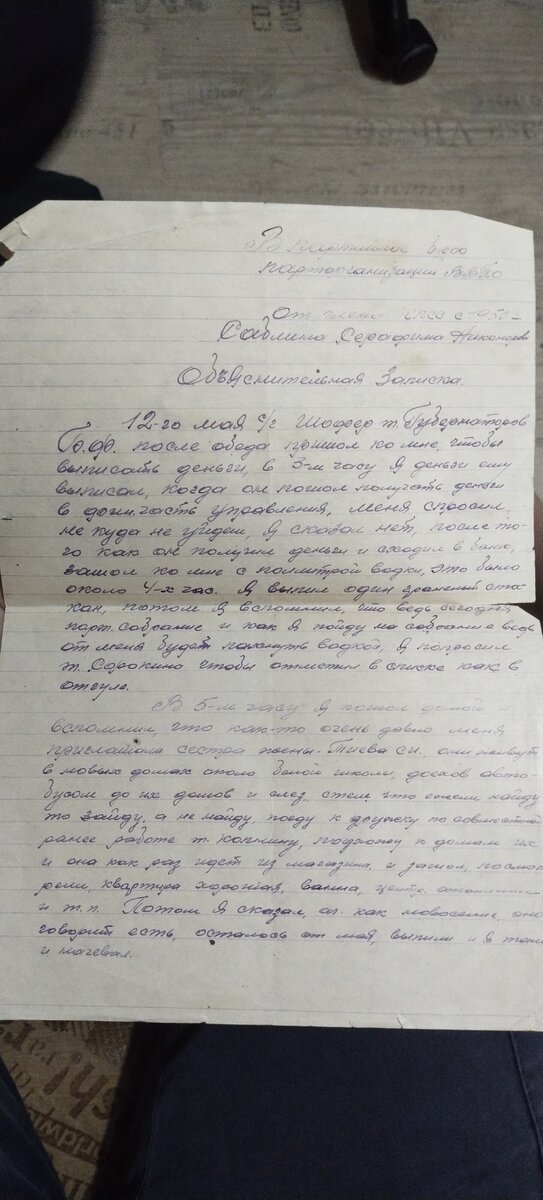 В партийное бюро
парторганизации
От члена КПСС с 195
Саблина Серафима Никоноров
Объяснительная Записка.
12-го мая с/г Шофер т. Губернаторов
после обеда пришол ко мне, чтобы
выписать деньги, в 3-м часу я деньги ему
выписал, когда он пошол получать деньги
в фин.часть управления, меня спросил,
не куда не уйдеш, я сказал нет, после то-
го как он получил деньги и сходил в баню,
зашол ко мне с политрой водки, это было
около 4-х час. Я выпил один граненый ста-
кан, потом я вспомнил, что ведь сегодня
парт. собрание и как я пойду на собрание ведь
от меня будет пахнуть водкой, я попросил
т. Сорокина чтобы отметил в списке как в
отгуле.
В 5-м часу я пошол домой и
вспомнил, что как-то очень давно меня
приглашала сестра жены они живут
в новых домах около белой школы, доехал авто-
бусом до их домов и слез, стем что если найду
то зайду, а не найду, поеду к дружку по совместной
ранее работе т. подхожу к домам их
и она как раз идет из магазина и зашол, посмот
рели, квартира хорошая, ванна, центр. отопление
и т.п. Потом я сказал, как новоселие, она
говорит есть, осталось от мая, выпили и я там
и ночевал.